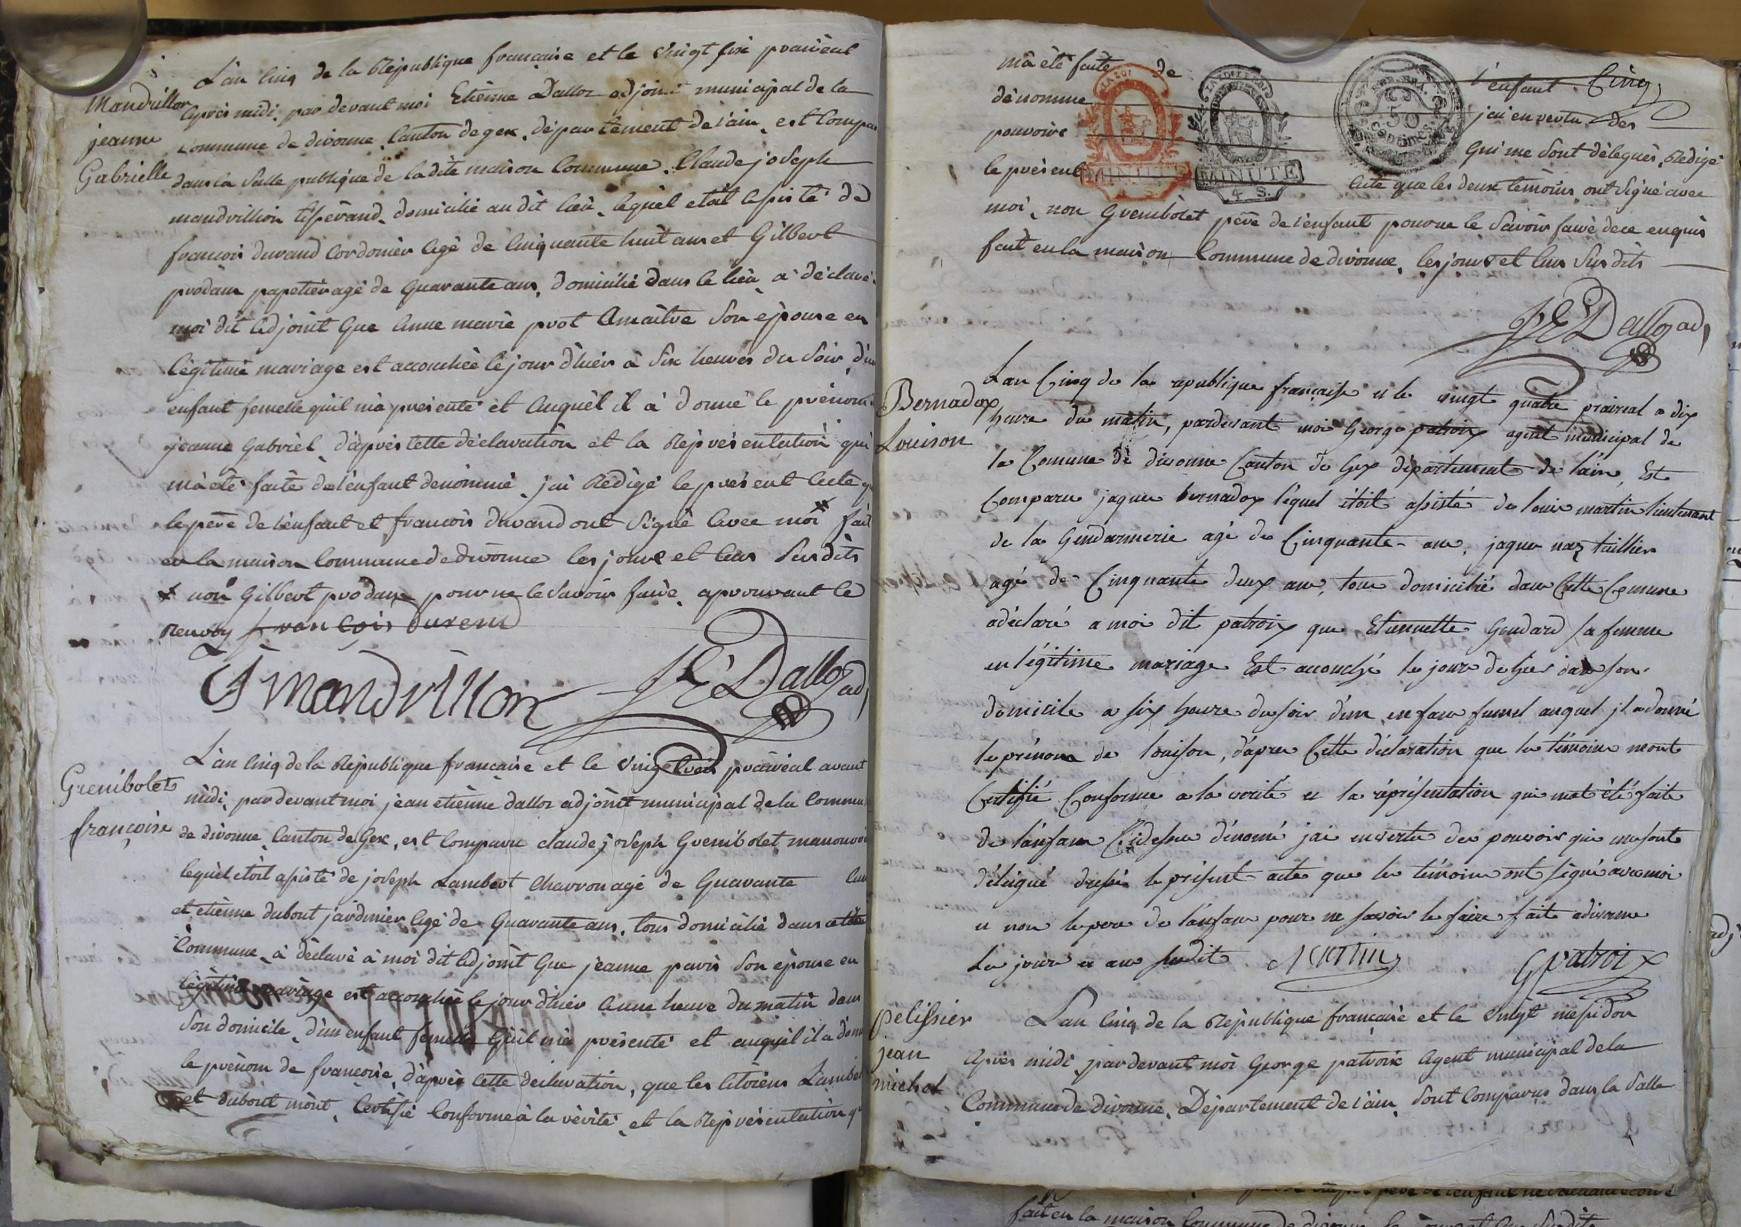 Mandrillon
jeanne
Gabrielle
L'an Cinq de la République française et le vingt six prairial
après midi, par devant moi Etienne Dalloz adjoint municipal de la
Commune de divonne, Canton de gex, département de l'ain, est Compa
dans la Salle publique de la dite maison Commune, Claude joseph
mandrillion domicilié au dit lieu, lequel etoit assisté de
françois durand Cordonier agé de Cinquante huit ans et Gilbert
prodans papetier agé de Quarante ans, domicilié dans le lieu, a déclaré
moi dit adjoint Que anne marie prot son épouse en
légitime mariage est accouchée le jour d'hier à Six heures du Soir, d'un
enfant femelle qu'il m'a présenté et auquel il a donné le prénom
jeanne Gabriel, d'après cette déclaration et la Représentation qui
m'a été faite de l'enfant dénommé, j'ai Rédigé le présent acte q
le père de l'enfant et françois durand ont Signé avec moi fait
en la maison Commune de divonne les jours et ans Susdits
x non Gilbert prodans pour ne le Savoir faire, approuvant le
Renvoy françois durand
CJ mandrillon JE Dalloz ad,
Grenibolet
françoise
L'an Cinq de la République française et le vingt trois prairéal avant
midi, par devant moi jean etienne dalloz adjoint municipal de la Commu
de divonne, Canton de Gex, est Comparu claude joseph Grenibolet manouvr
lequel étoit assisté de joseph Lambert Charron agé de Quarante
et etienne dubout jardinier agé de Quarante ans, tous domicilié dans cette
Commune, a déclaré à moi dit adjoint Que jeanne paris Son épouse en
légitime mariage est accouchée le jour d'hier à une heure du matin dans
Son domicile, d'un enfant femelle Qu'il m'a présenté et auquel il a don
le prénom de francoise, d'après cette déclaration, que les citoiens Lamber
et dubout m'ont Certifié Conforme à la vérité et la Représentation q
m'a été faite de l'enfant Cinq
dénommé j'ai en vertu des
pouvoirs Qui me Sont délégués, Rédigé
le présent acte que les deux témoins ont Signé avec
moi, non Grenibolet père de l'enfant pour ne le Savoir faire de ce enquis
fait en la maison Commune de divonne, les jours et ans Susdits
MINUTE
MINUTE
4 S.
50
JE Dalloz ad,
Bernadox
Louison
L'an Cinq de la republique française et le vingt quatre prairial a dix
heure du matin, pardevant moi George patroix agent municipal de
la Comune de divonne Canton de Gex département de l'ain, Est
Comparu jaque bernadox lequel étoit assisté de louis martin lieutenant
de la Gendarmerie agé de Cinquante ans, jaque naz taillier
agé de Cinquante deux ans, tous domicilié dans Cette Comune
a déclaré a moi dit patroix que Etiennette Goudard sa femme
en légitime mariage Est acouché le jour de hier dans son
domicile a six heure du soir d'un enfant femel auquel jl a donné
le prénom de louison, d'apres Cette déclaration que les témoins m'ont
Certifié Conforme a la verité et la réprésentation qui m'at été faite
de l'enfant Cidessus dénomé j'ai en vertu des pouvoirs qui me sont
délégué dressé le présent acte que les témoins ont signé avec moi
et non le pere de l'enfant pour ne savoir le faire fait a divonne
Les jour et an susdit Martin G patroix
Pelissier
jean
michel
L'an Cinq de la République française et le vingt messidor
après midi, par devant moi George patroix Agent municipal de la
Commune de divonne, Département de l'ain, Sont Comparus dans la Salle
fait en la maison Commune de divonne